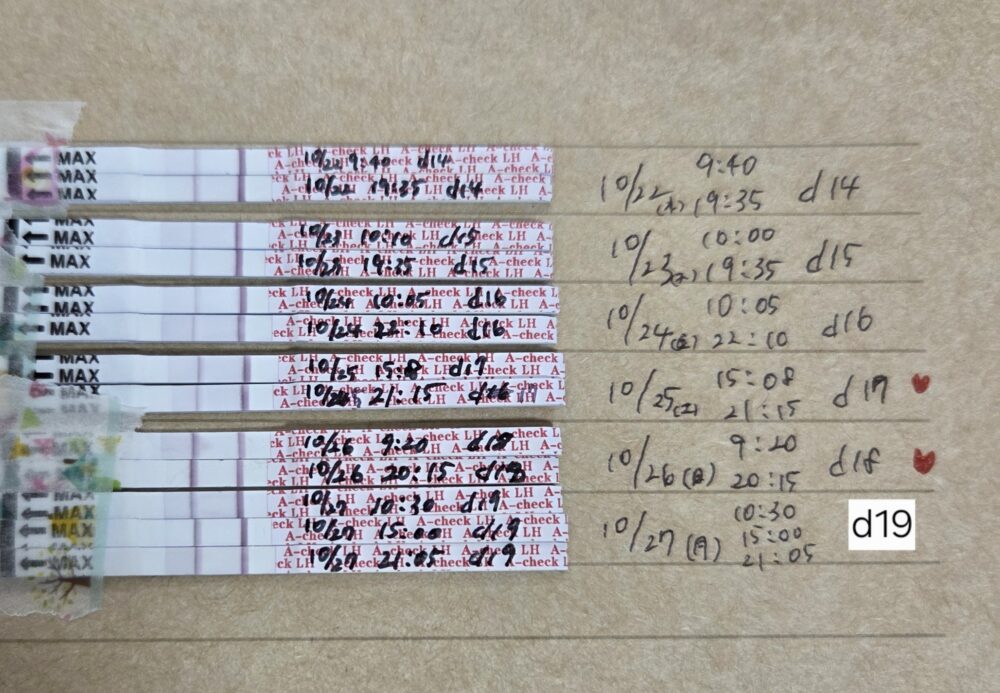 MAX 10/22 9:40 d14
MAX 10/22 19:35 d14
MAX
9:40
10/22(水) 19:35 d14
MAX 10/23 10:10 d15
MAX 10/23 19:35 d15
10:00
10/23(木) 19:35 d15
MAX 10/24 10:05 d16
MAX 10/24 22:10 d16
MAX
10:05
10/24(金) 22:10 d16
MAX 10/25 15:08 d17
MAX 21:15 17
MAX
15:08
10/25(土) 21:15 d17
10/26 9:20 d18
10/26 20:15 d18
9:20
10/26(日) 20:15 d18
MAX 10/27 10:30 d19
MAX 10/27 15:00 d19
MAX 10/27 21:05 d19
MAX
10:30
15:00
10/27(月) 21:05
d19
A-check LH